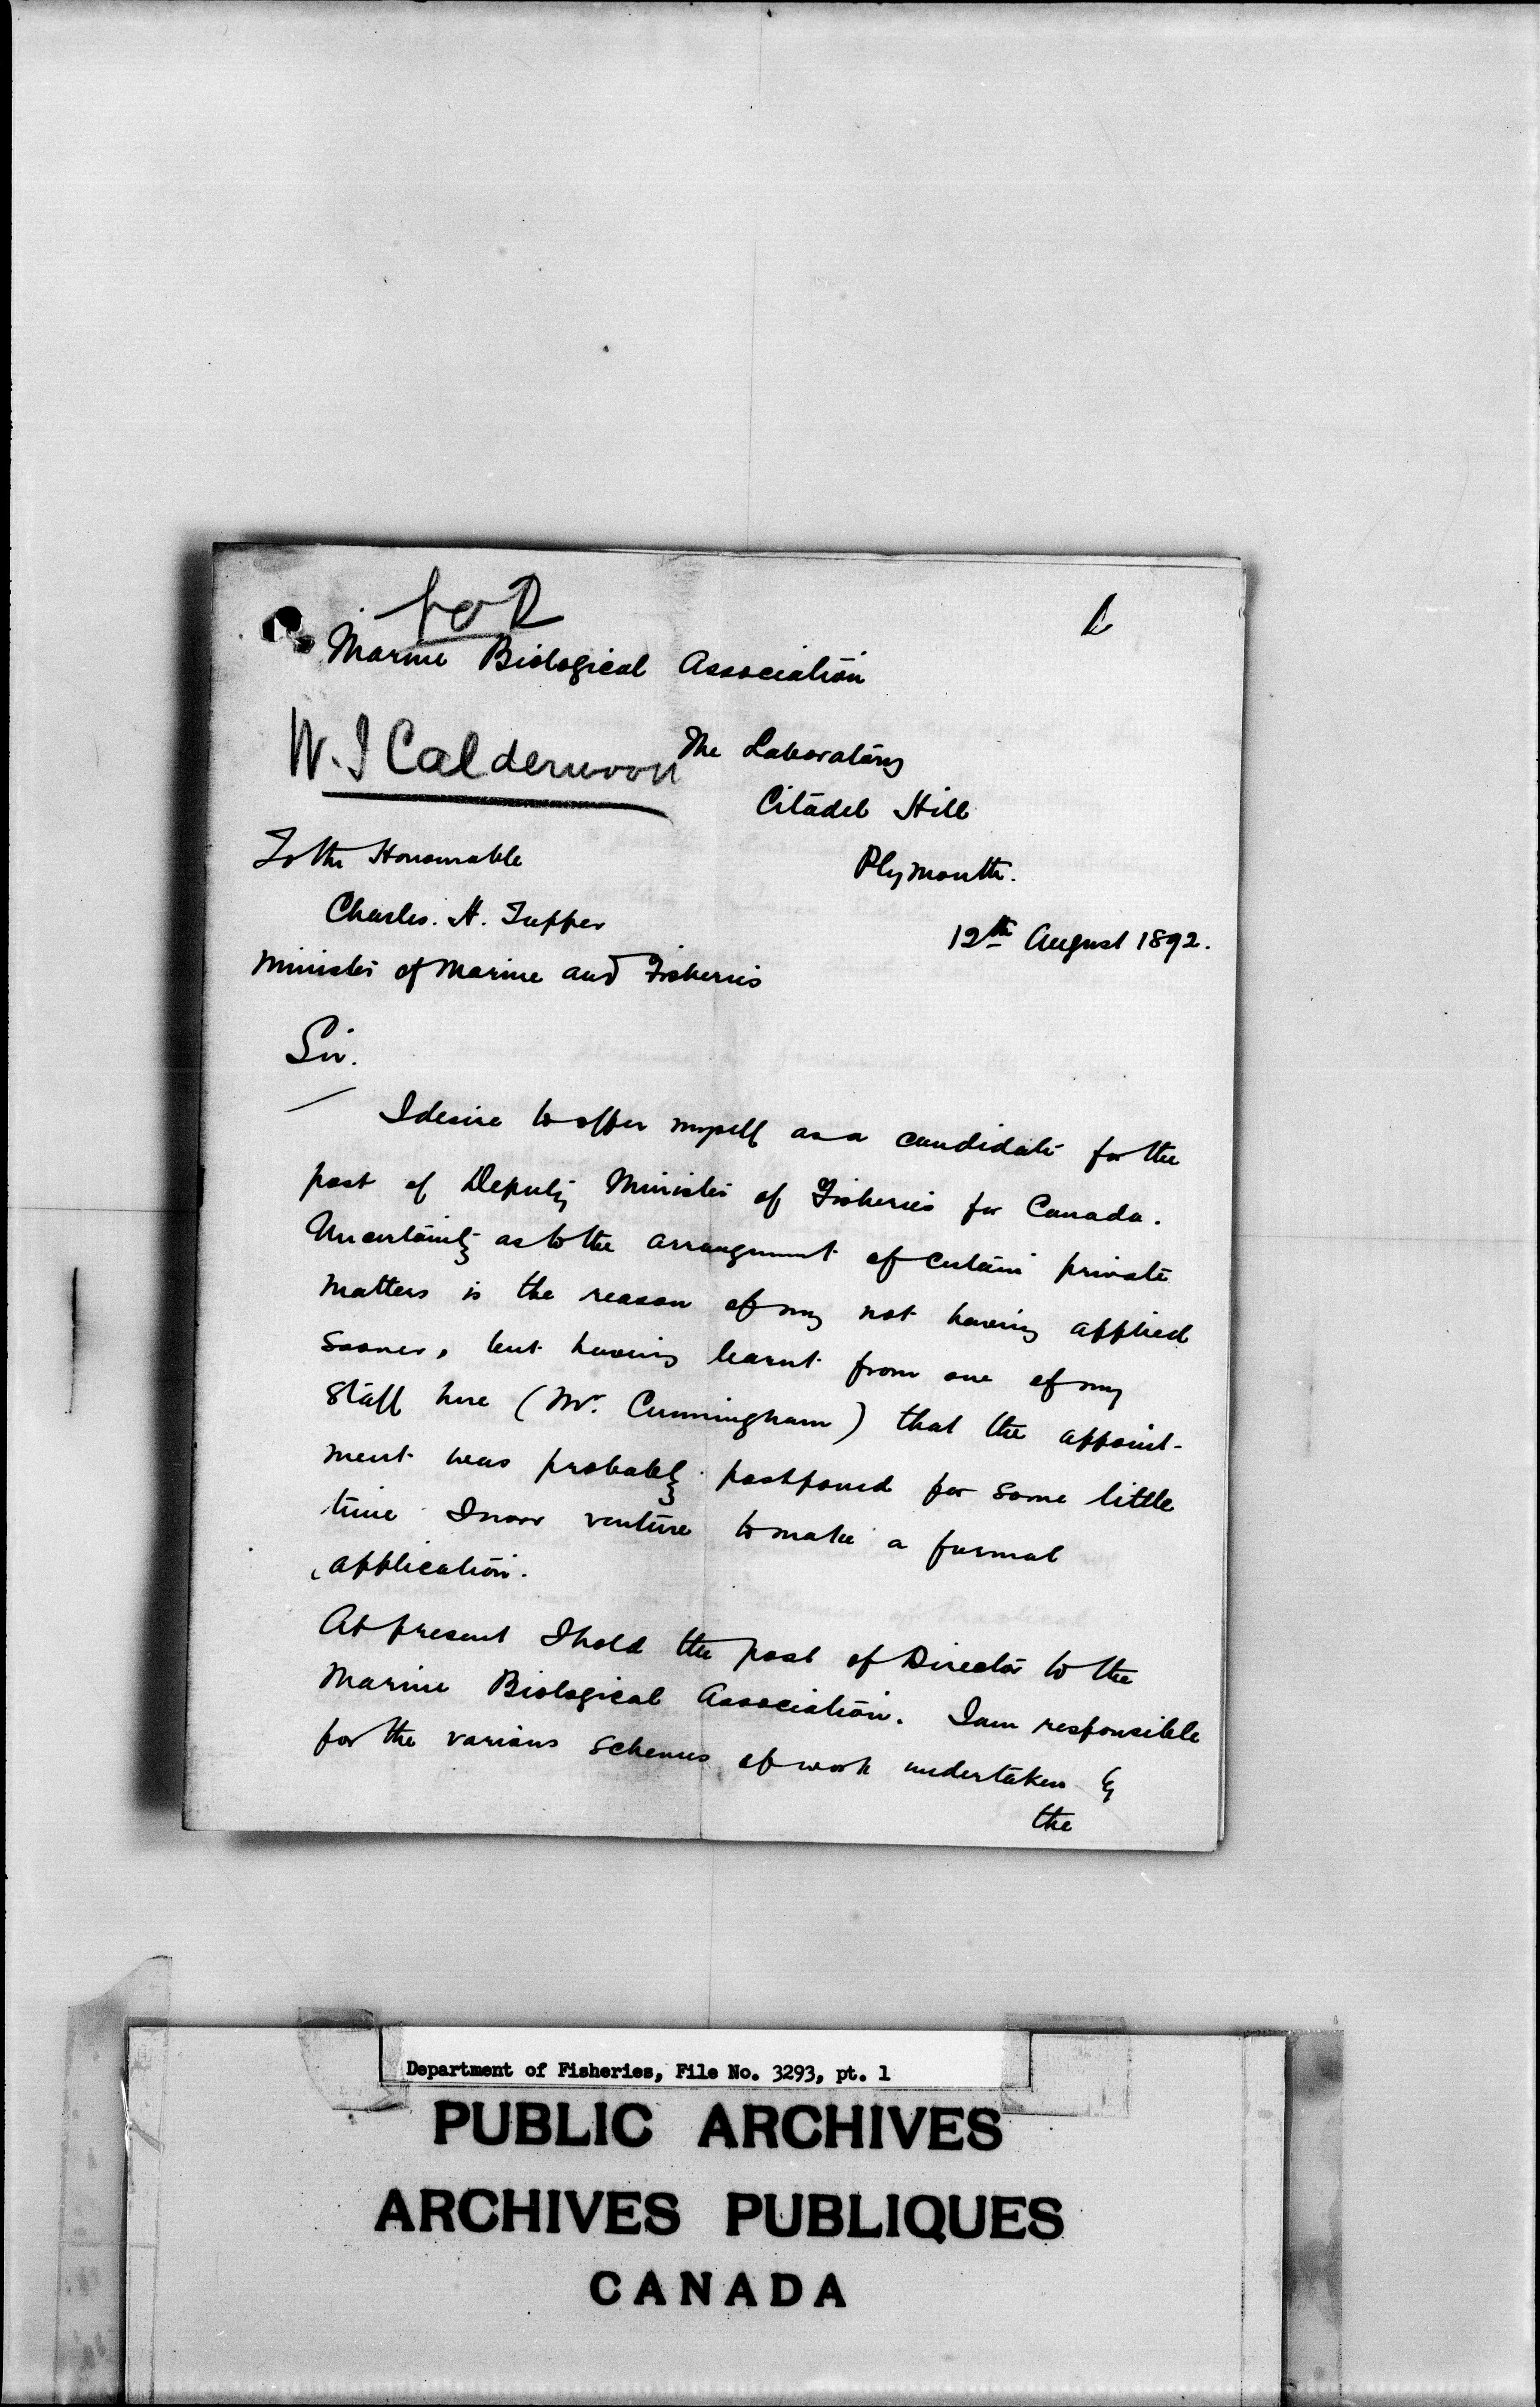 for
Marine Biological Association
W. J Calderwood
The Laboratory
Citadel Hill
Plymouth.
To the Honourable
Charles. H. Tupper
12th August 1892.
Minister of Marine and Fisheries
Sir.
I desire to offer myself as a candidate for the
post of Deputy Minister of Fisheries for Canada.
Uncertainty as to the arrangement of certain private
matters is the reason of my not having applied
sooner, but having learnt from one of my
staff here (Mr. Cunningham) that the appoint-
ment was probably postponed for some little
time I now venture to make a formal
application.
At present I hold the post of Director to the
Marine Biological Association. I am responsible
for the various schemes of work undertaken by
the
Department of Fisheries, File No. 3293, pt. 1
PUBLIC ARCHIVES
ARCHIVES PUBLIQUES
CANADA